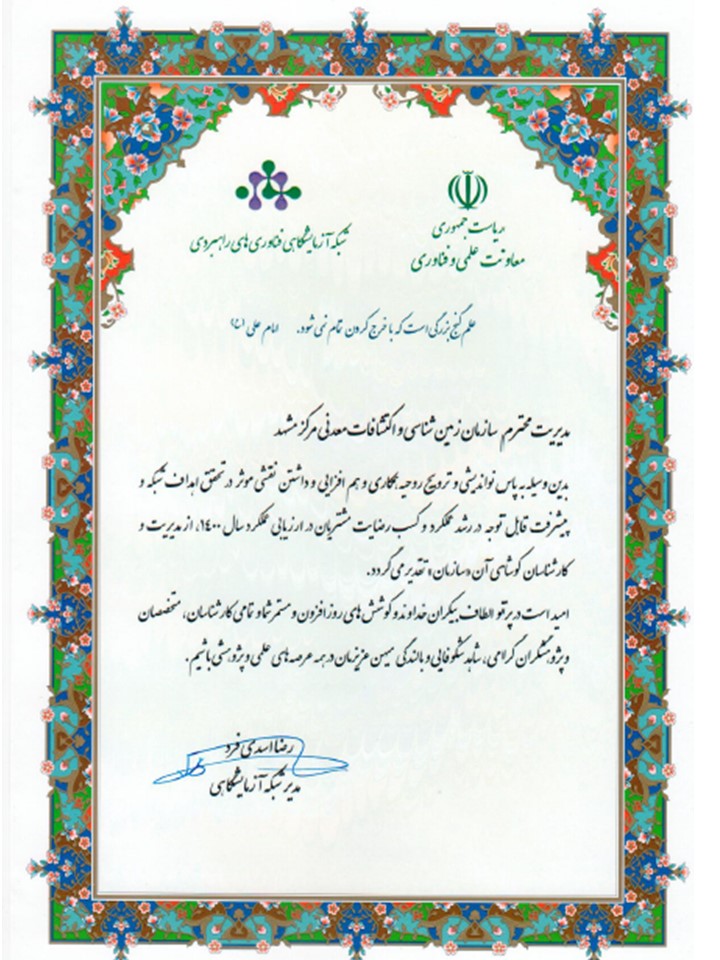 ریاست جمهوری
معاونت علمی و فناوری
شبکه آزمایشگاهی فناوری های راهبردی
علم گنج بزرگی است که با خرج کردن تمام نمی شود. امام علی (ع)
مدیریت محترم سازمان زمین شناسی و اکتشافات معدنی مرکز مشهد
بدین وسیله به پاس نواندیشی و ترویج روحیه همکاری و هم افزایی و داشتن نقشی موثر در تحقق اهداف شبکه و
پیشرفت قابل توجه در رشد عملکرد و کسب رضایت مشتریان در ارزیابی عملکرد سال ۱۴۰۰، از مدیریت و
کارشناسان کوشای آن «سازمان» تقدیر می گردد.
امید است در پرتو الطاف بیکران خداوند و کوشش های روزافزون و مستمر شما و تمامی کارشناسان، متخصصان
و پژوهشگران گرامی، شاهد شکوفایی و بالندگی میهن عزیزمان در همه عرصه های علمی و پژوهشی باشیم.
رضا اسدی فرد
مدیر شبکه آزمایشگاهی